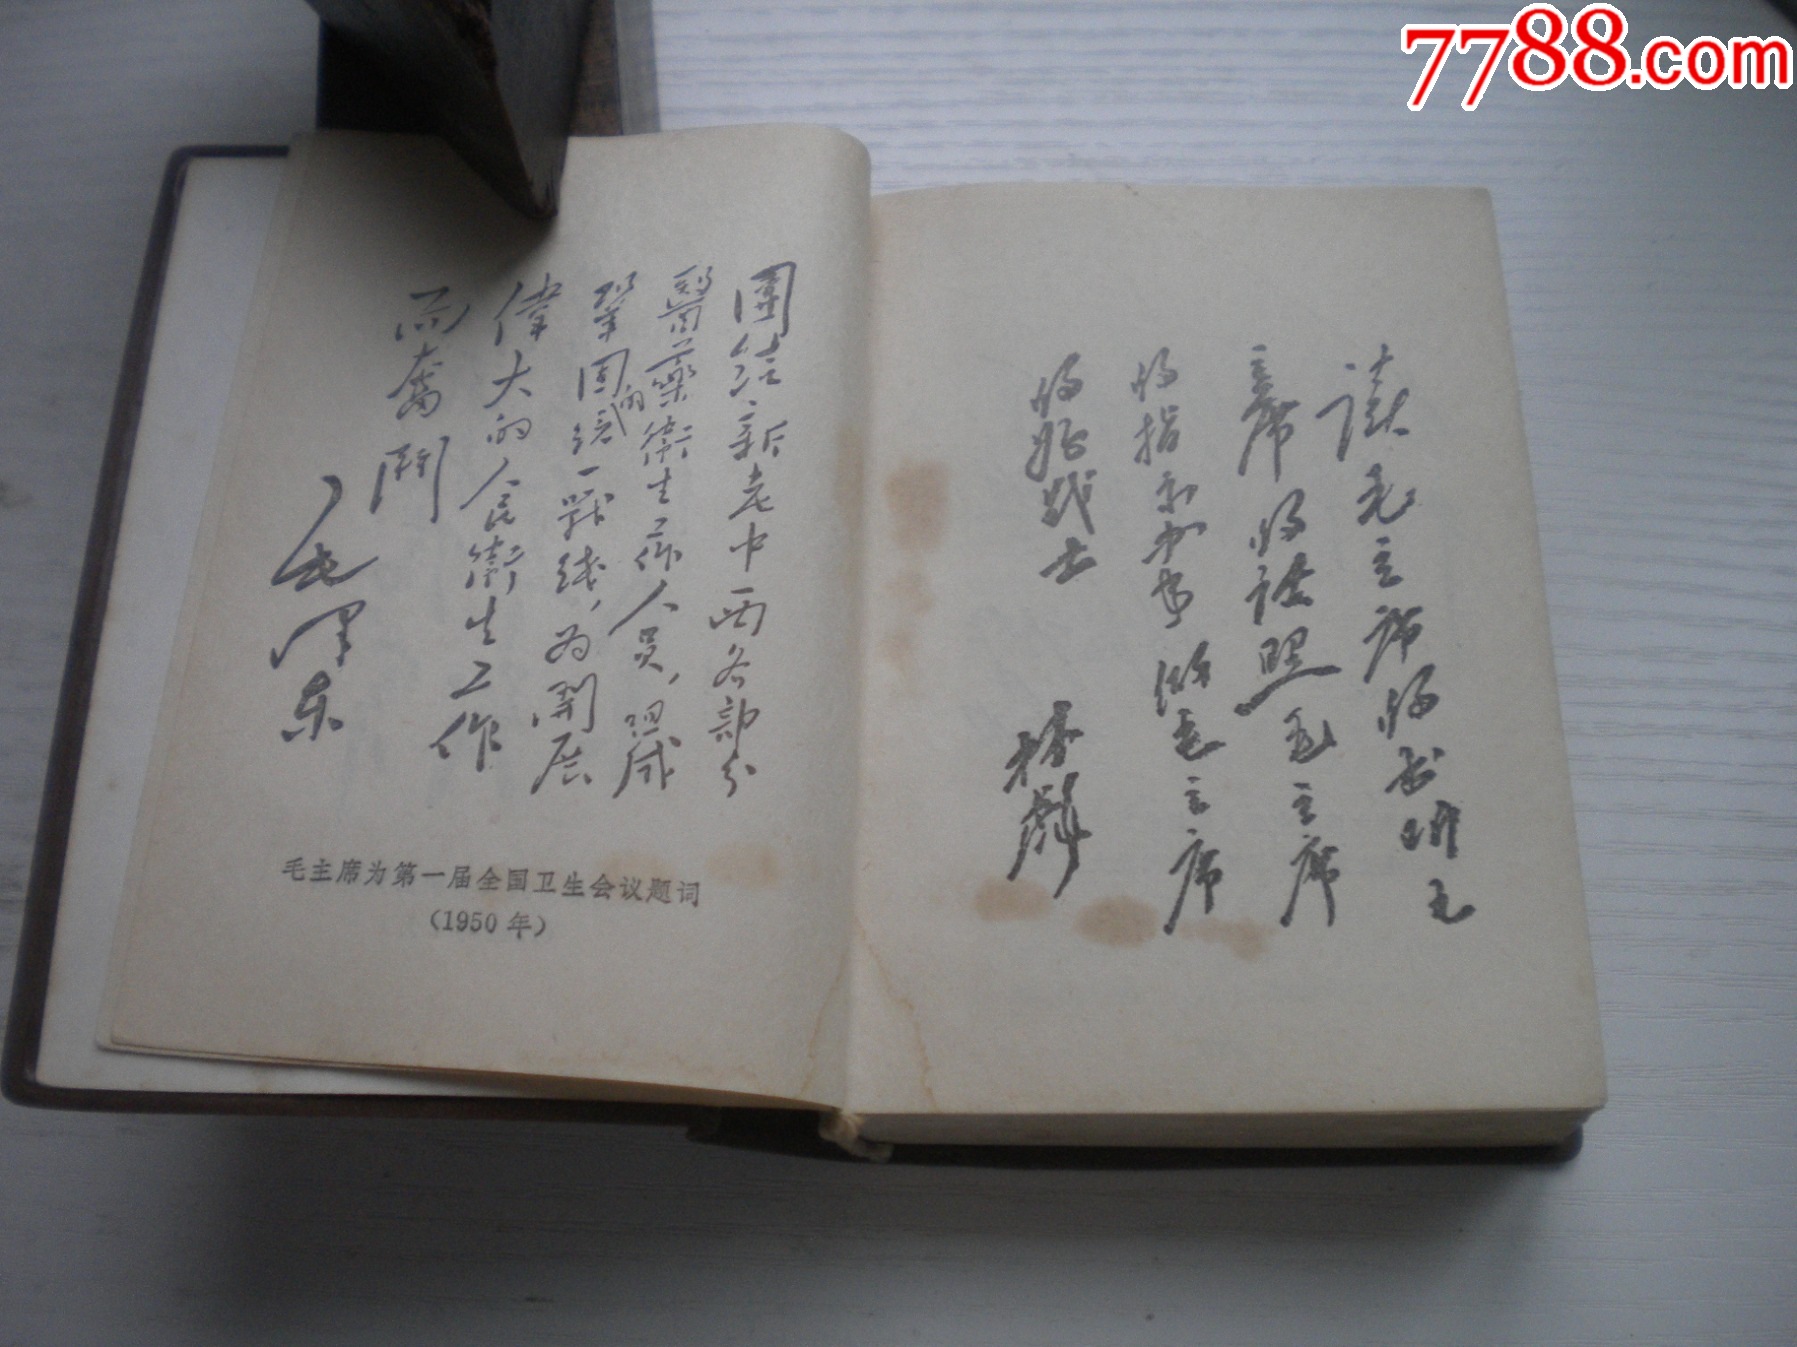 7788.com
團结新老中西各部分
醫藥衛生工作人员，组成
鞏固的统一戰线，为開展
偉大的人民衛生工作
而奮鬥
毛泽东
毛主席为第一届全国卫生会议题词
（1950年）
读毛主席的书听毛
主席的话照毛主席
的指示办事做毛主席
的好战士
林彪